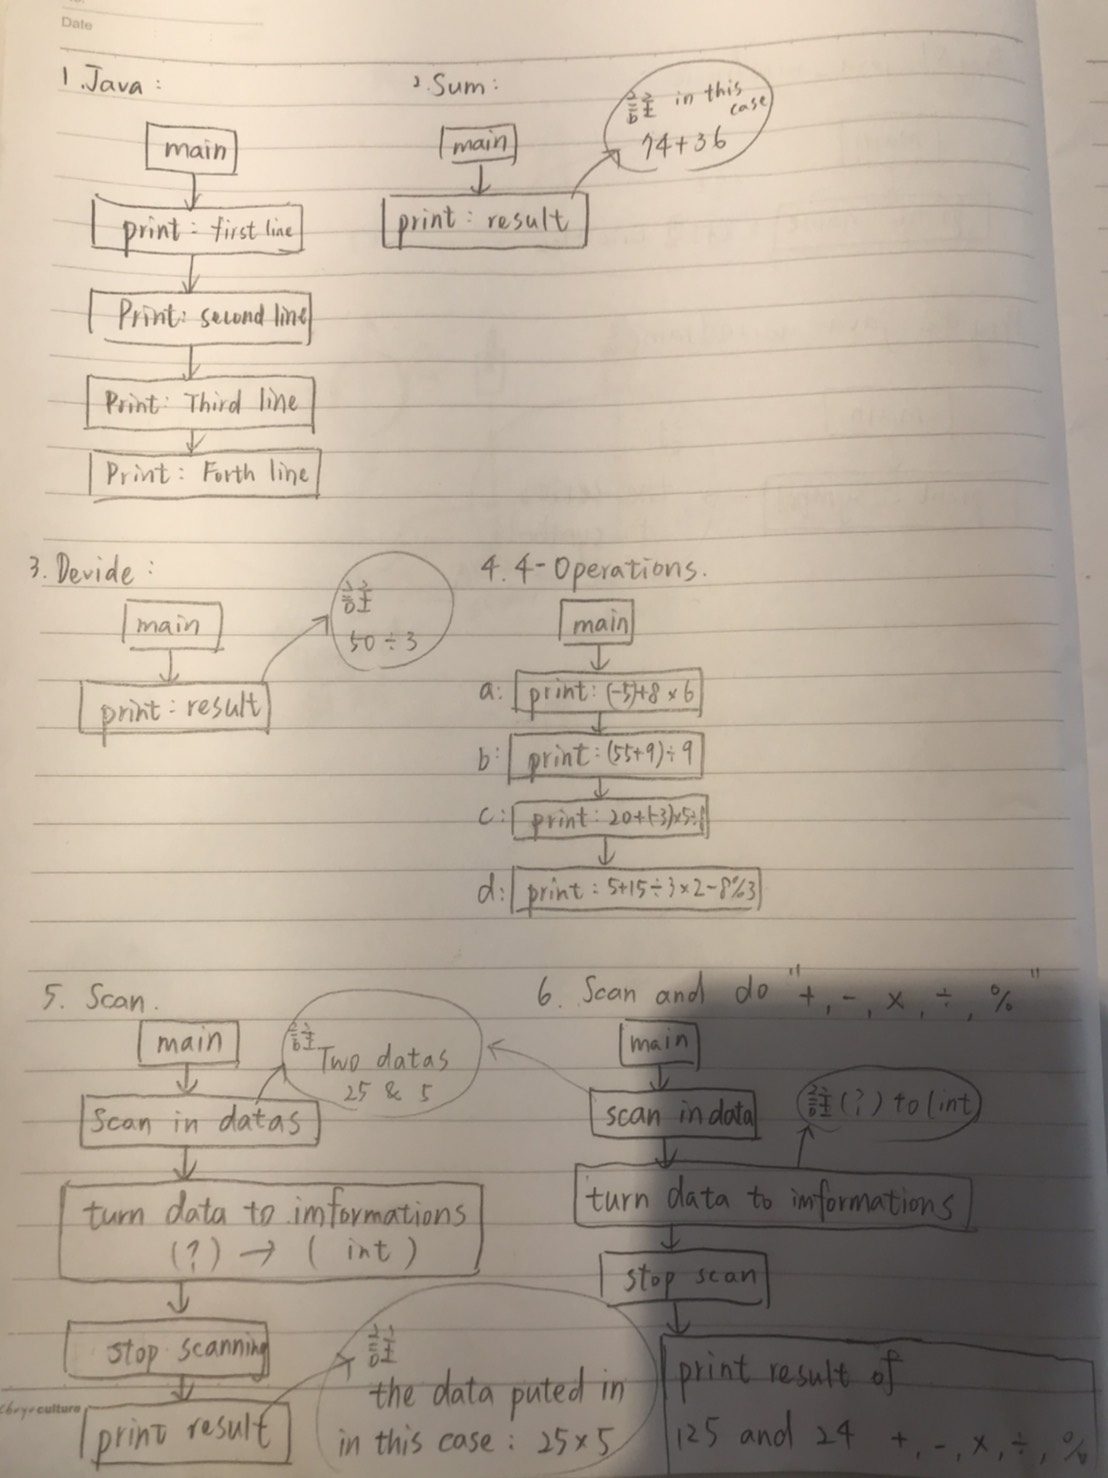 Date
1. Java :
main
print : first line
Print: second line
Print: Third line
Print: Forth line
2. Sum :
main
print : result
註 in this
case
74+36
3. Devide :
main
print : result
註
50 ÷ 3
4. 4-Operations.
main
a: print : (-5)+8 × 6
b: print : (55+9)÷9
c: print : 20+(-3)×5÷
d: print : 5+15÷3×2-8%3
5. Scan.
main
Scan in datas
註 Two datas
25 & 5
turn data to imformations
(?) → ( int )
stop scanning
print result
註
the data puted in
in this case : 25×5
6. Scan and do "+, -, ×, ÷, %"
main
scan in data
註 (?) to (int)
turn data to imformations
stop scan
print result of
125 and 24 +, -, ×, ÷, %